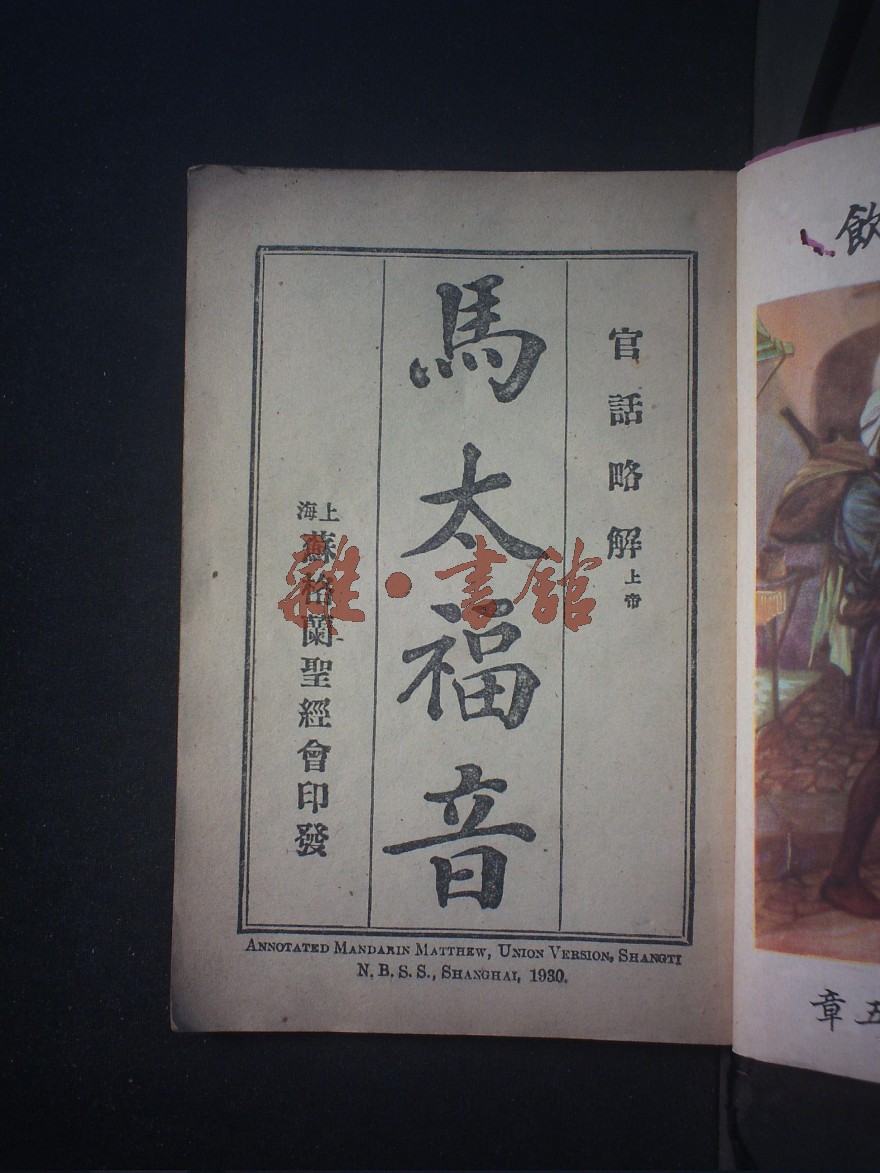 官話略解上帝
馬太福音
上海蘇格蘭聖經會印發
ANNOTATED MANDARIN MATTHEW, UNION VERSION, SHANGTI
N. B. S. S., SHANGHAI, 1930.
雜·書館
飲
五章